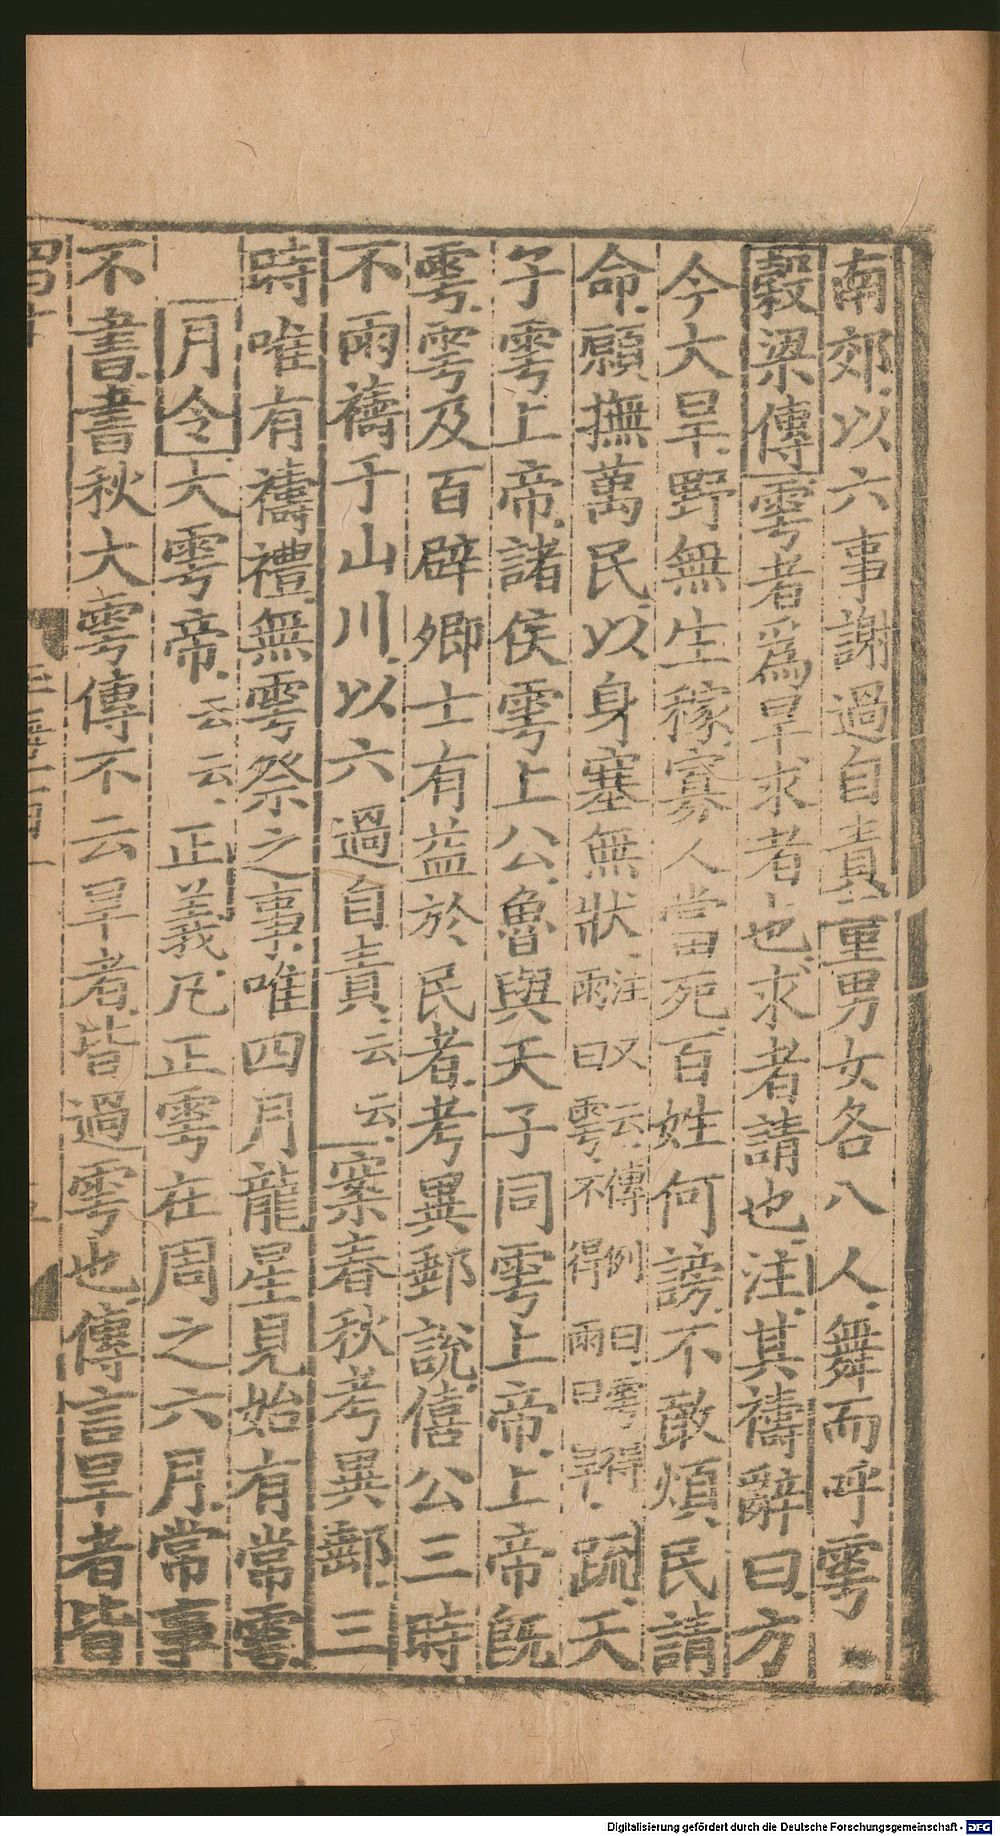 南郊以六事謝過自責童男女各八人舞而呼雩
穀梁傳雩者爲旱求者也求者請也注其禱辭曰方
今大旱野無生稼寡人當死百姓何謗不敢煩民請
命願撫萬民以身塞無狀注又云傳例曰雩得雨曰雩不得雨曰旱疏天
子雩上帝諸侯雩上公魯與天子同雩上帝上帝旣
雩雩及百辟卿士有益於民者考異郵說僖公三時
不雨禱于山川以六過自責云云案春秋考異郵三
時唯有禱禮無雩祭之事唯四月龍星見始有常雩
月令大雩帝云云正義凡正雩在周之六月常事
不書書秋大雩傳不云旱者皆過雩也傳言旱者皆
Digitalisierung gefördert durch die Deutsche Forschungsgemeinschaft - DFG